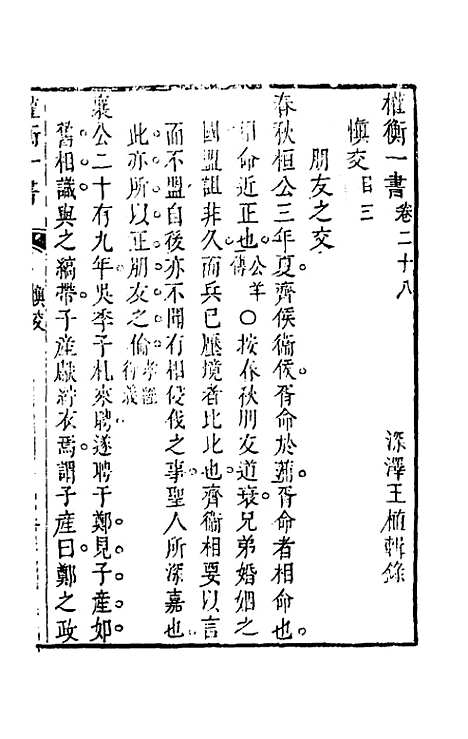 權衡一書 卷二十八
深澤王植輯錄
慎交 目三
朋友之交
春秋桓公三年夏齊侯衞侯胥命於蒲胥命者相命也
相命近正也 公羊傳 ○按春秋朋友道衰兄弟婚姻之
國盟詛非久而兵已壓境者比比也齊衞相要以言
而不盟自後亦不聞有相侵伐之事聖人所深嘉也
此亦所以正朋友之倫
襄公二十有九年吳季子札來聘遂聘于鄭見子產如
舊相識與之縞帶子產獻紵衣焉謂子產曰鄭之政
權衡一書
慎交